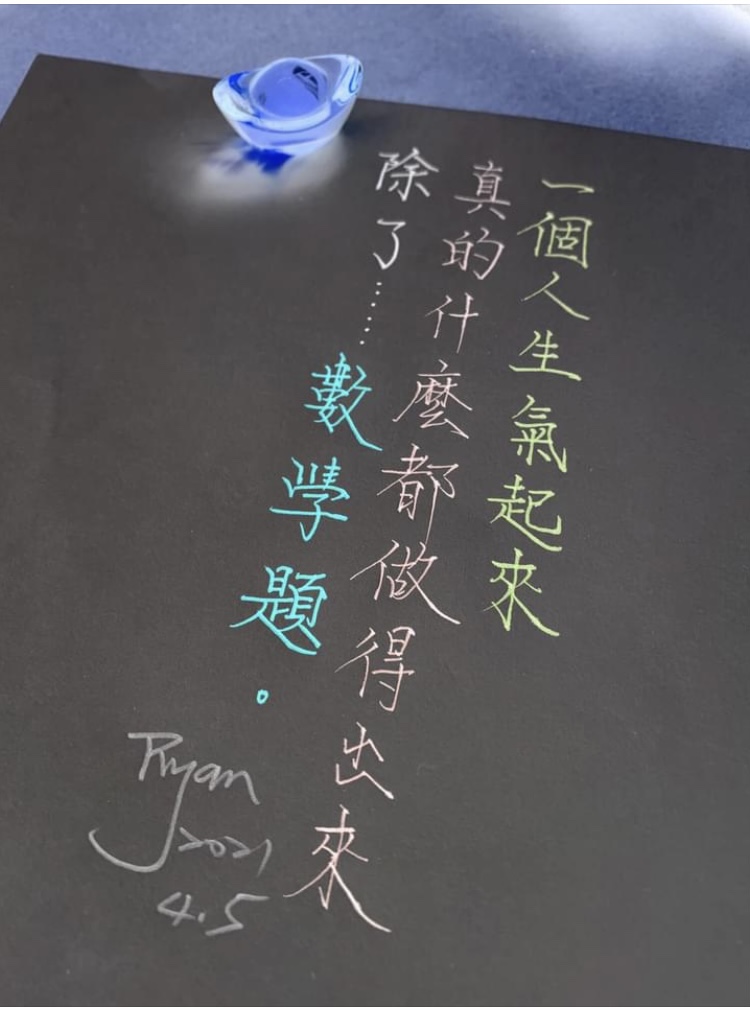 一個人生氣起來
真的什麼都做得出來
除了……數學題。
Ryan
2021
4.5